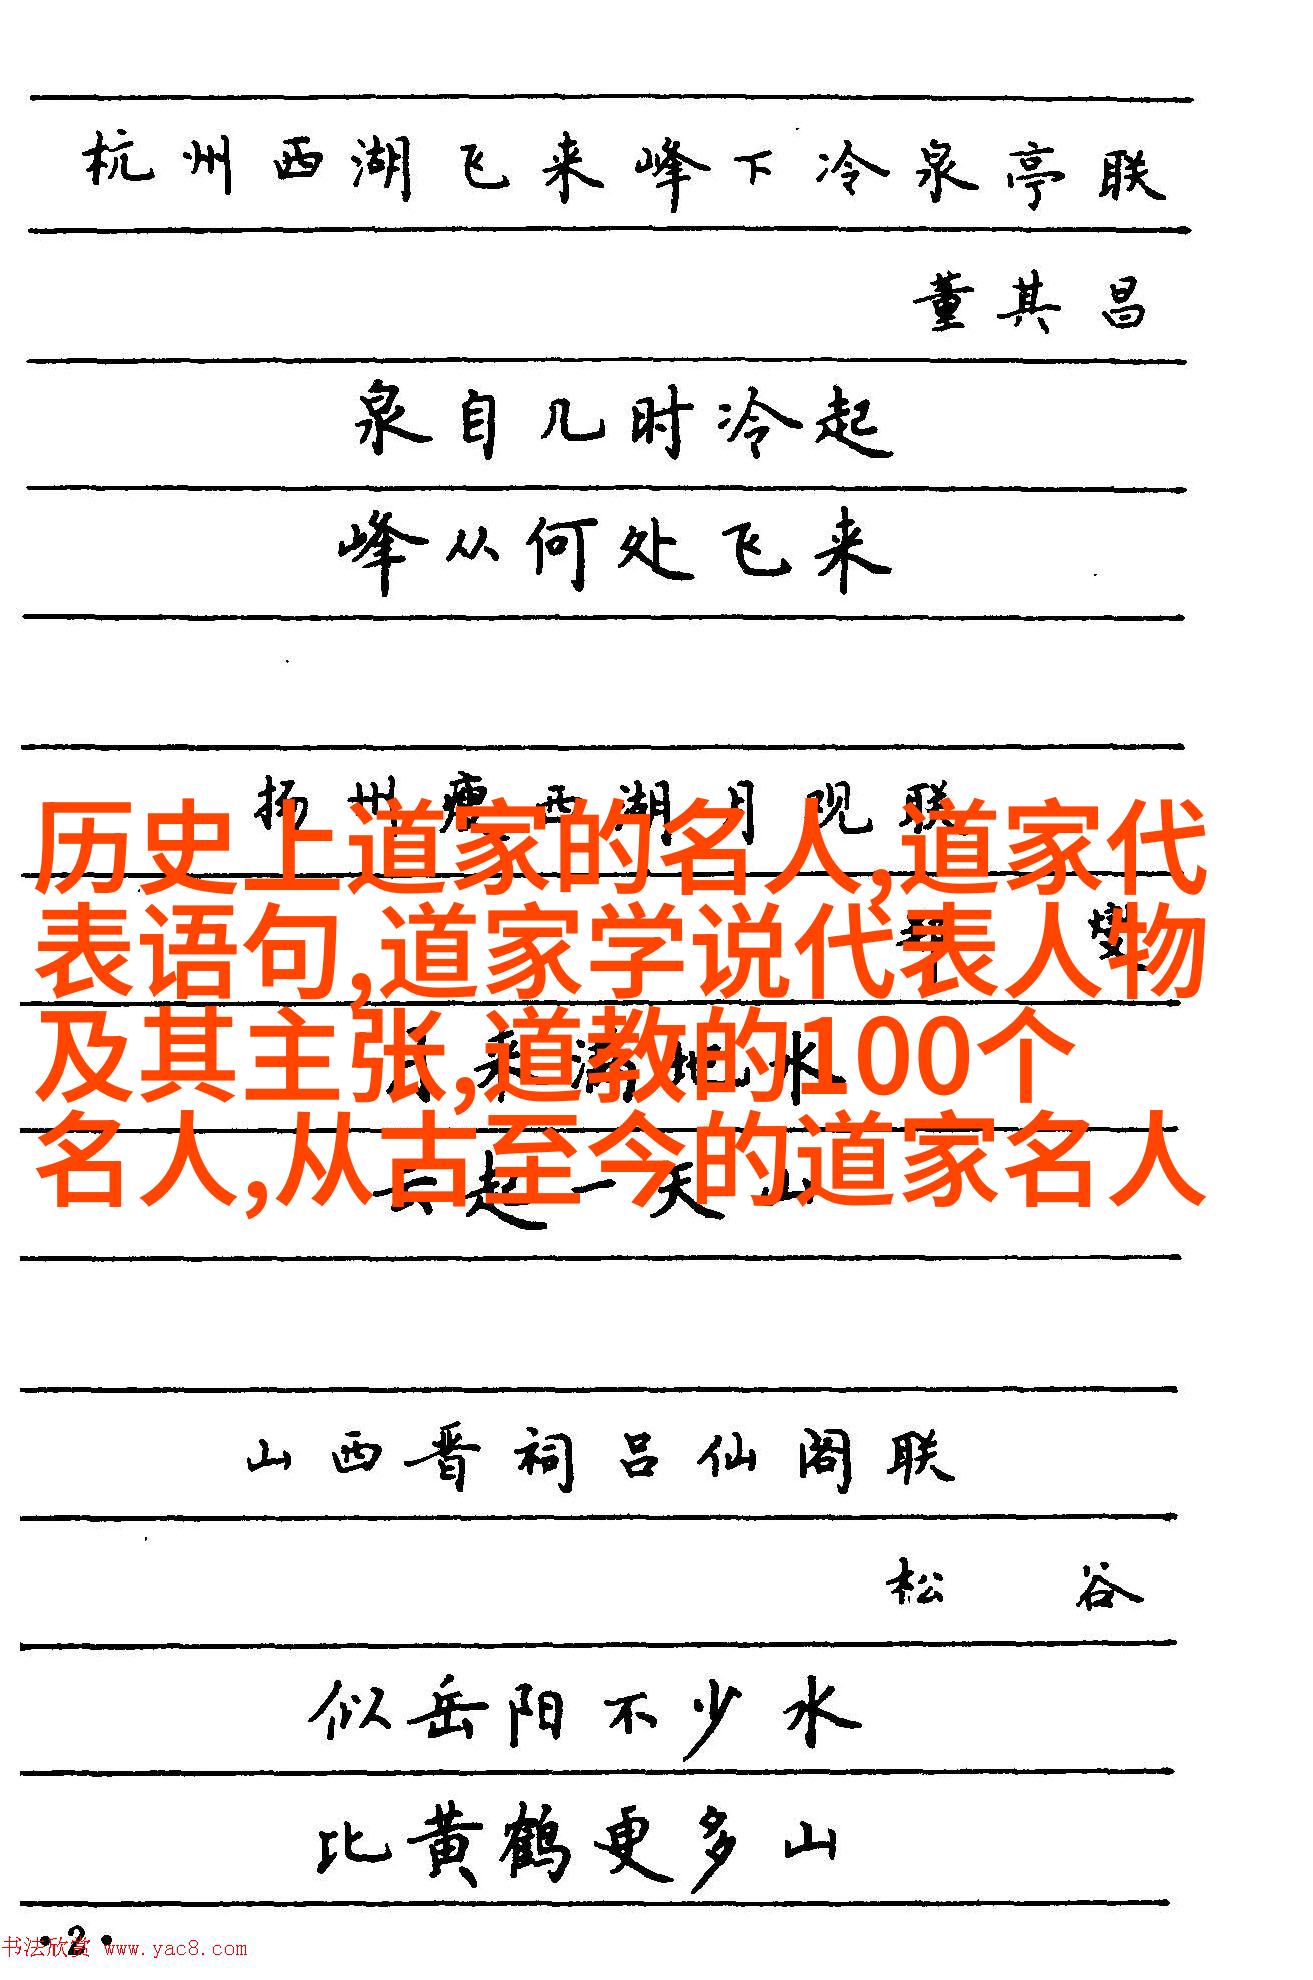 杭州西湖飞来峰下冷泉亭联
董其昌
泉自几时冷起
峰从何处飞来
扬州瘦西湖月观联
历史上道家的名人,道家代
燮
表语句,道家学说代表人物
来满地水
及其主张,道教的100个
云起一天山
名人,从古至今的道家名人
山西晋祠吕仙阁联
松谷
似岳阳不少水
比黄鹤更多山
·2·
书法欣赏 www.yac8.com